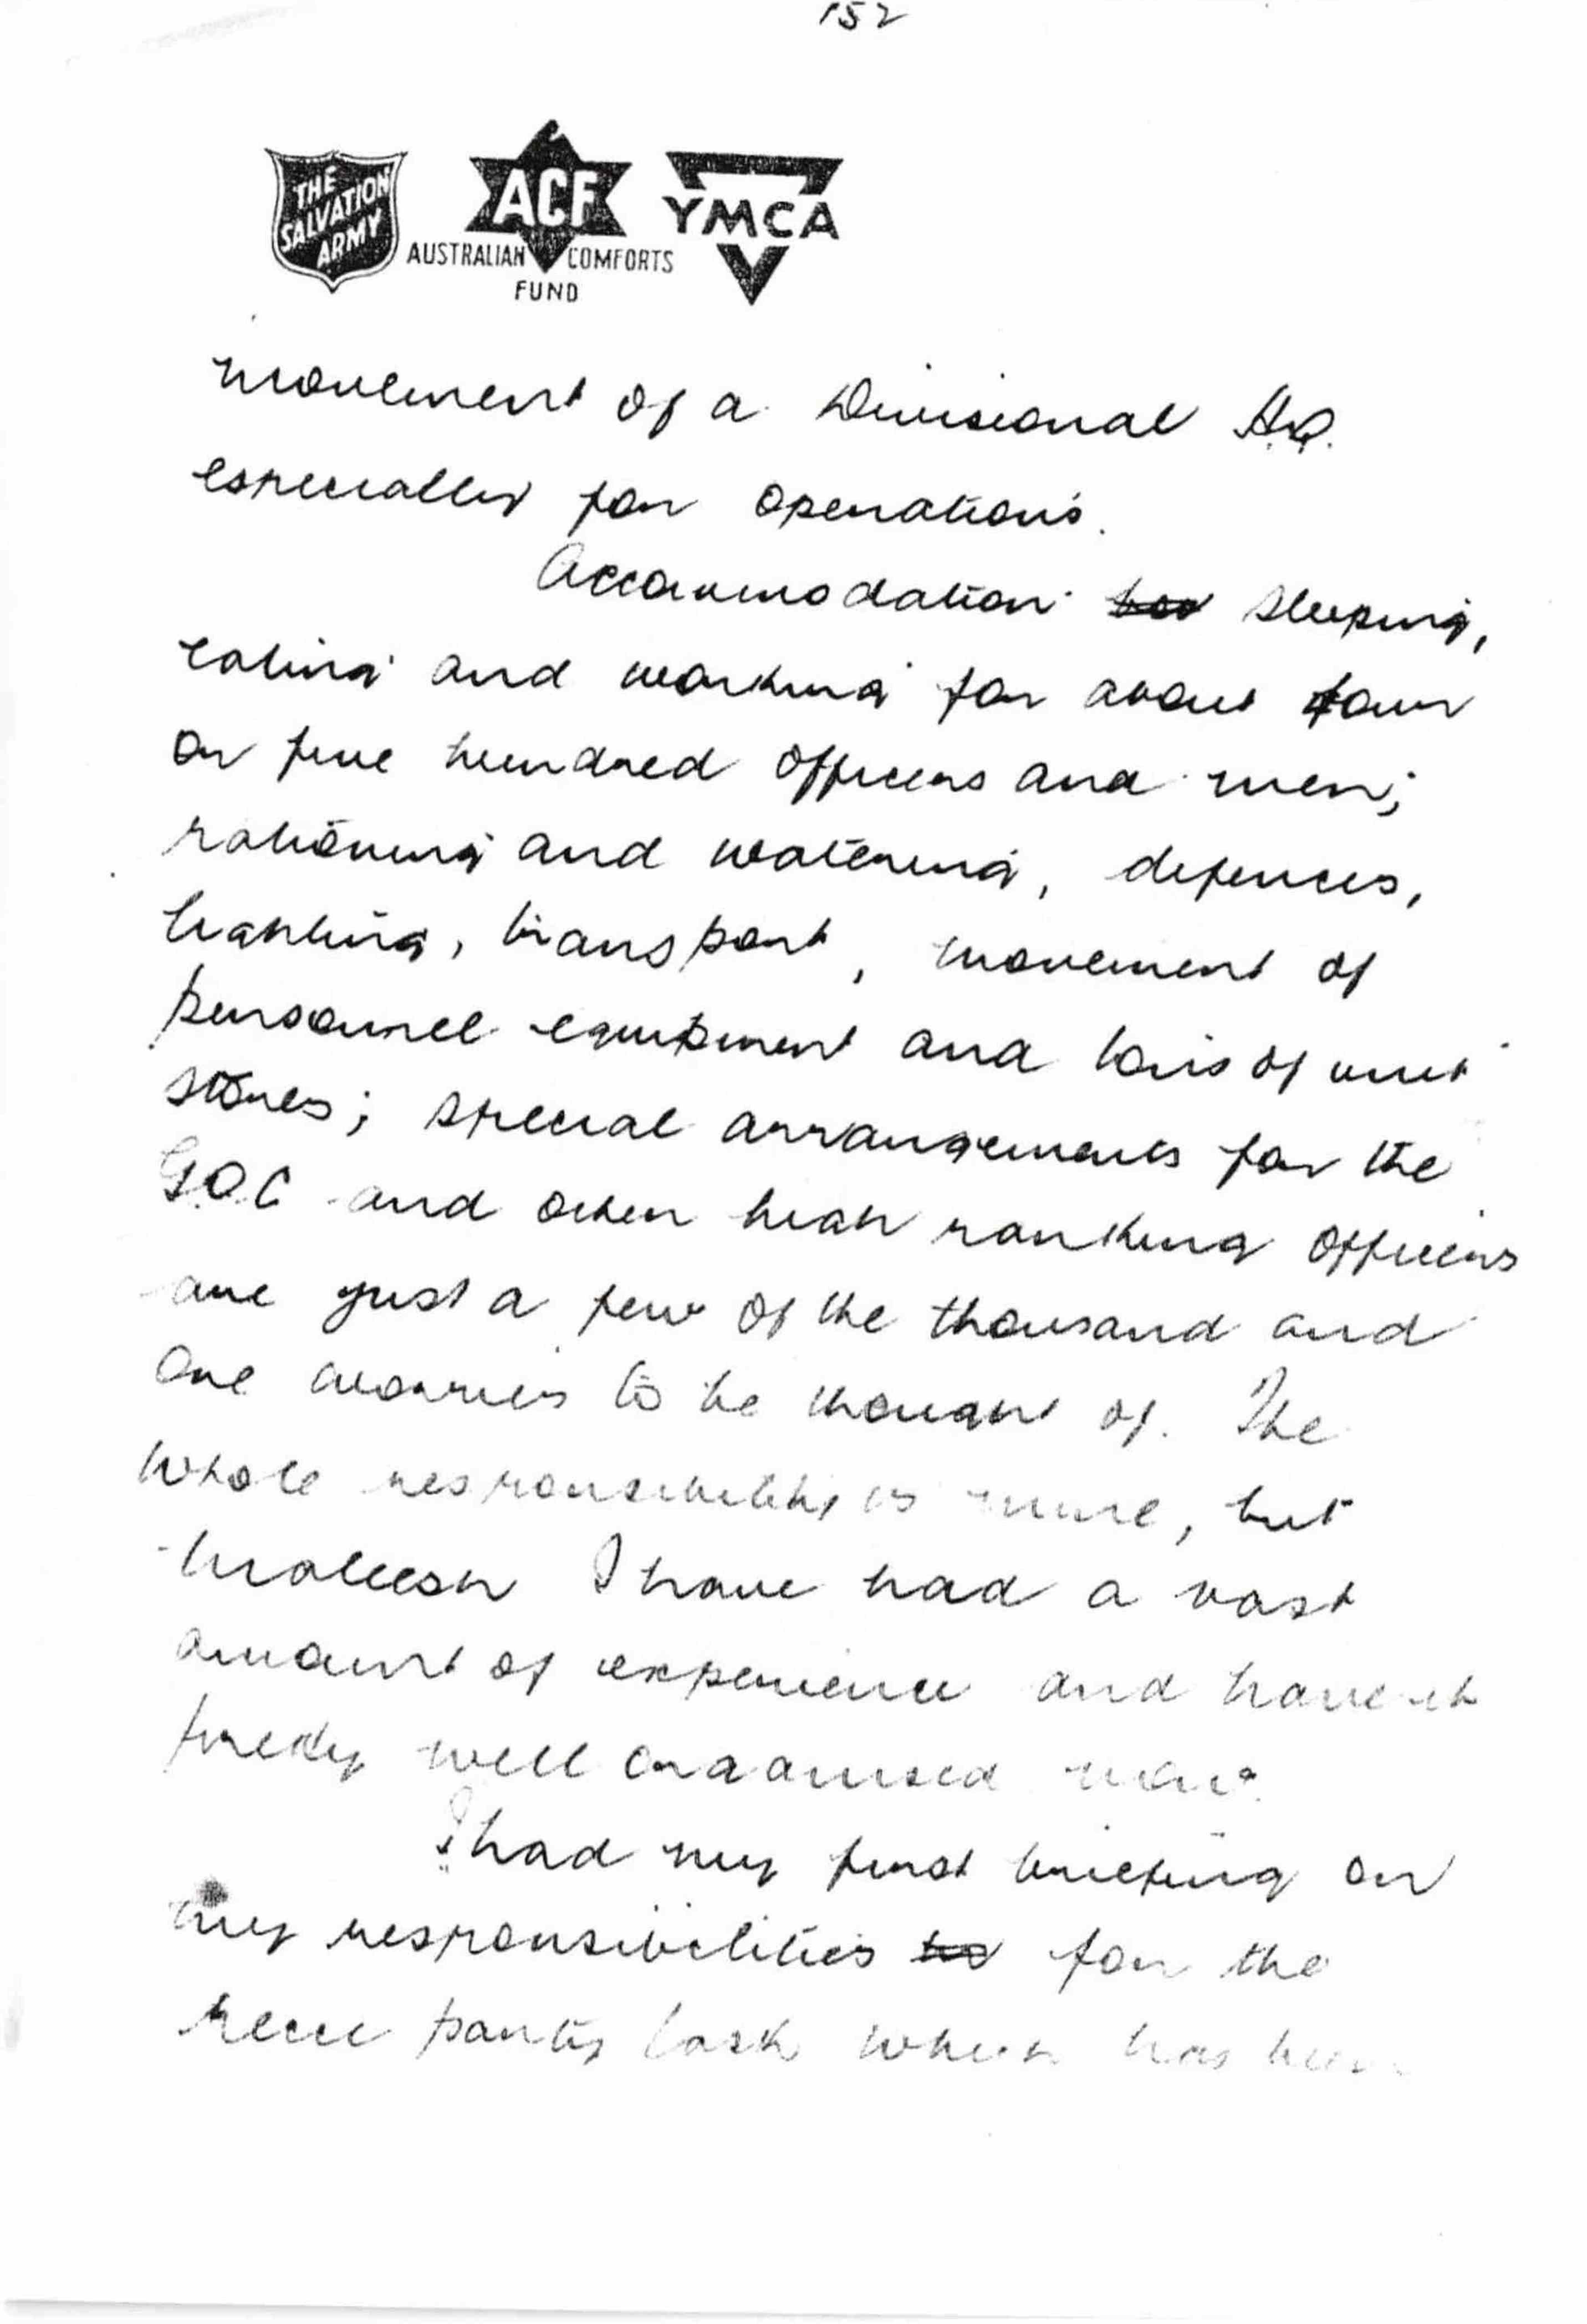 152
THE SALVATION ARMY
ACF
AUSTRALIAN COMFORTS FUND
YMCA
movement of a Divisional H.Q.
especially for operations.
Accommodation sleeping,
eating and working for about four
or five hundred officers and men;
rationing and watering, defences,
lighting, transport, movement of
personnel equipment and tons of unit
stores; special arrangements for the
G.O.C and other high ranking officers
are just a few of the thousand and
one worries to be thought of. The
whole responsibility is mine, but
maleesh I have had a vast
amount of experience and have it
pretty well organised now.
I had my first briefing on
my responsibilities for the
recce party task which has been